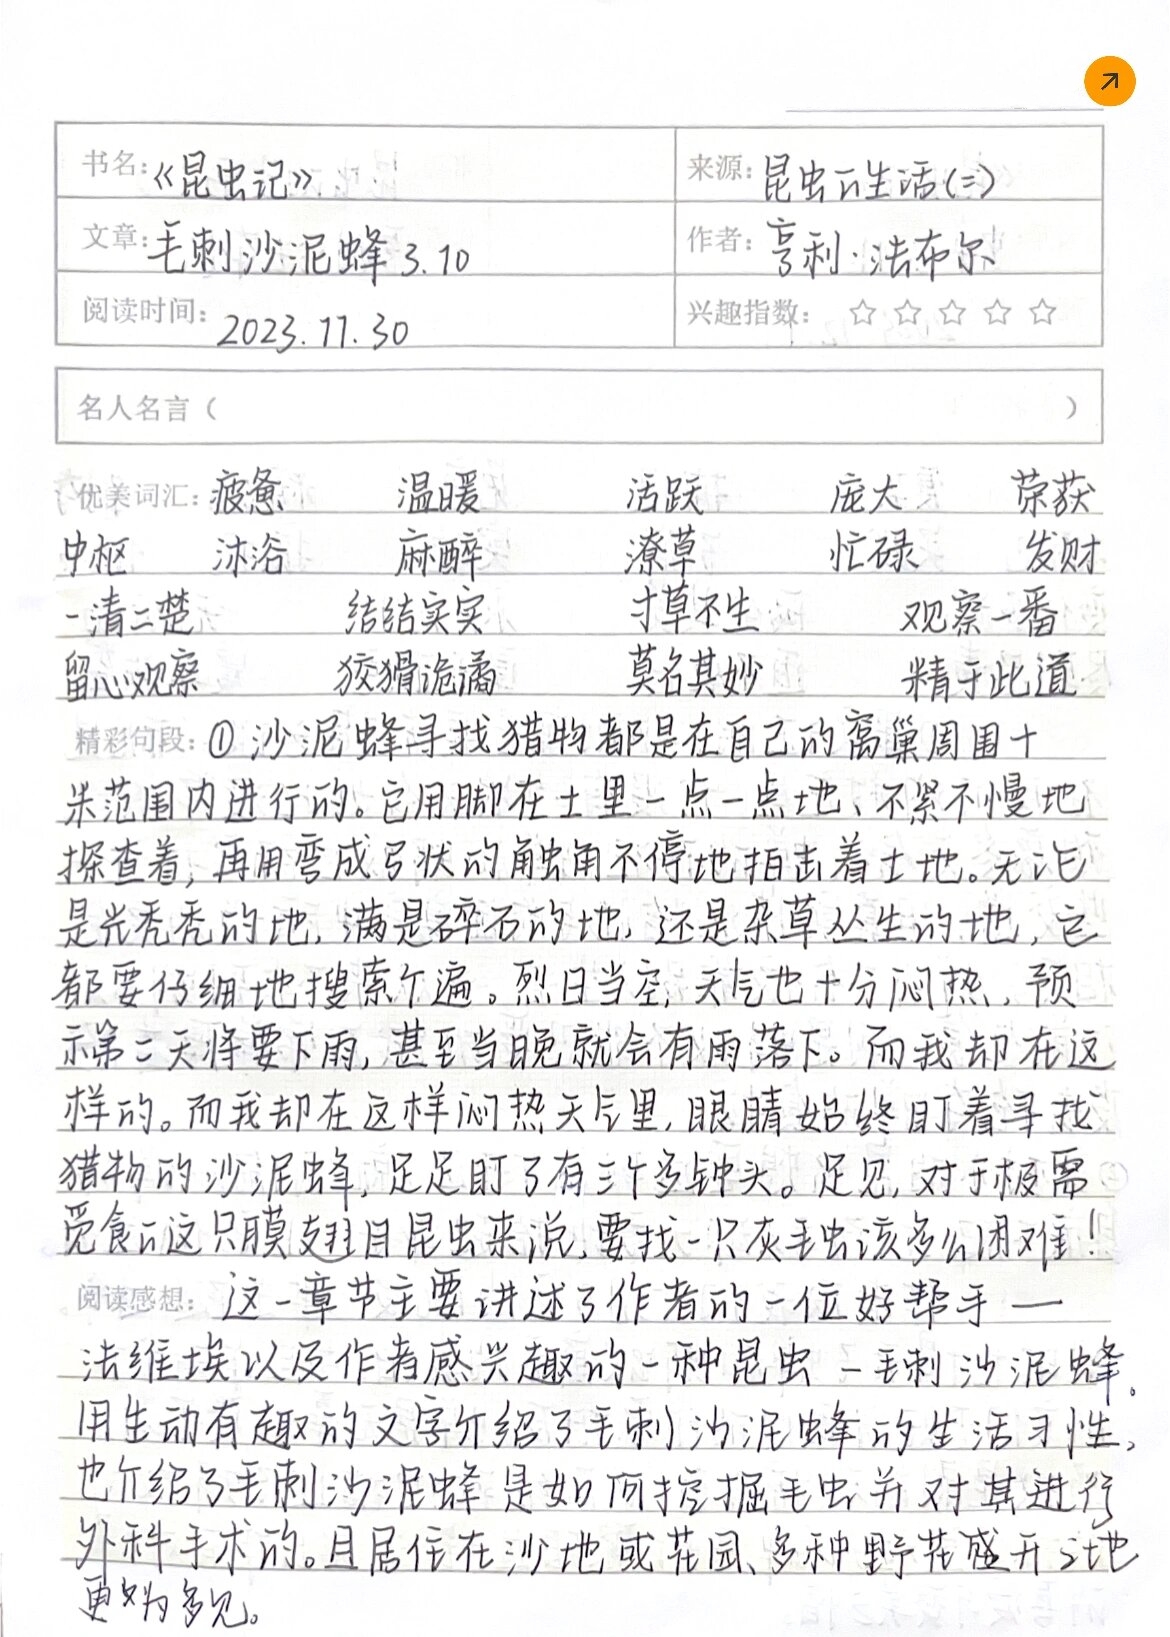 书名:《昆虫记》 来源:昆虫的生活(三)
文章:毛刺沙泥蜂3.10 作者:亨利·法布尔
阅读时间:2023.11.30 兴趣指数:☆☆☆☆☆
名人名言( )
优美词汇:疲惫 温暖 活跃 庞大 荣获
中枢 沐浴 麻醉 潦草 忙碌 发财
一清二楚 结结实实 寸草不生 观察一番
留心观察 狡猾诡谲 莫名其妙 精于此道
精彩句段:①沙泥蜂寻找猎物都是在自己的窝巢周围十
米范围内进行的。它用脚在土里一点一点地、不紧不慢地
探查着,再用弯成弓状的触角不停地拍击着土地。无论
是光秃秃的地,满是碎石的地,还是杂草丛生的地,它
都要仔细地搜索个遍。烈日当空,天气也十分闷热,预
示第二天将要下雨,甚至当晚就会有雨落下。而我却在这
样的。而我却在这样闷热天气里,眼睛始终盯着寻找
猎物的沙泥蜂,足足盯了有三个多钟头。足见,对于极需
觅食的这只膜翅目昆虫来说,要找一只灰毛虫该多么困难!
阅读感想:这一章节主要讲述了作者的一位好帮手—
法维埃以及作者感兴趣的一种昆虫—毛刺沙泥蜂,
用生动有趣的文字介绍了毛刺沙泥蜂的生活习性,
也介绍了毛刺沙泥蜂是如何挖掘毛虫并对其进行
外科手术的。且居住在沙地或花园、多种野花盛开之地
更为多见。